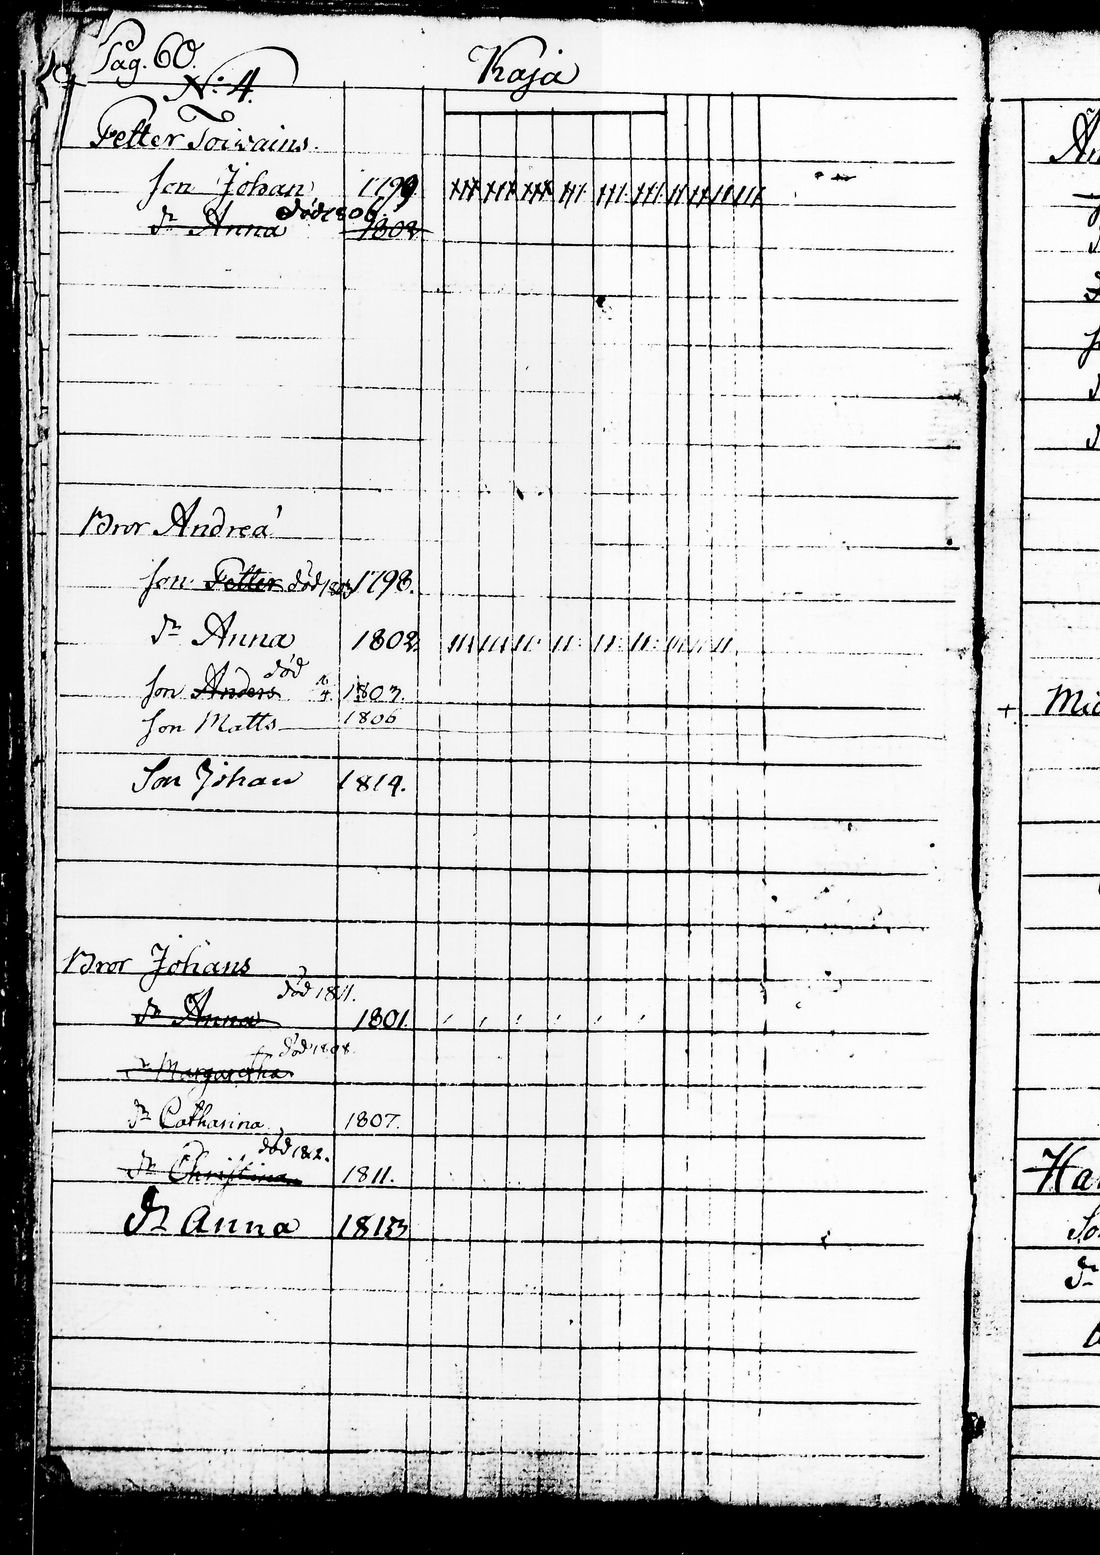 Pag. 60.
Kaja
N:o 4.
Petter Toivains.
Son Johan 1799
död 1806.
dr Anna 1802
Bror Andrea'
Son Petter död 1803 1798.
dr Anna 1802
död
Son Anders 1803.
Son Matts 1806
Son Johan 1814.
Bror Johans
död 1811.
dr Anna 1801.
död 1808.
dr Margaretha
dr Catharina 1807.
död 1812.
dr Christina 1811.
dr Anna 1813
+